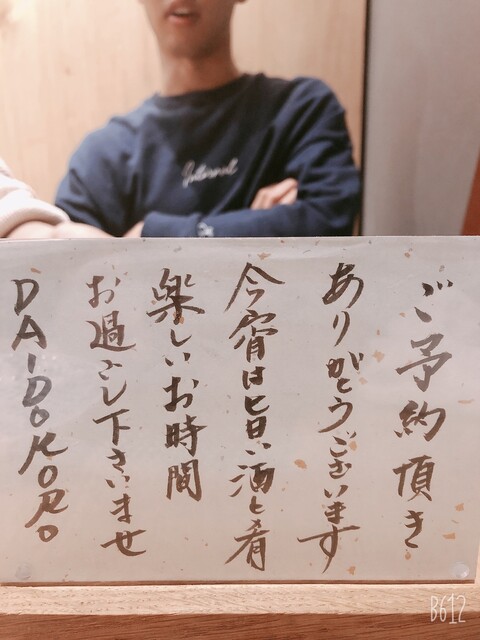 ご予約頂き
ありがとうございます
今宵は旨い酒と肴
楽しいお時間
お過ごし下さいませ
DAIDOKORO
Internet
B612